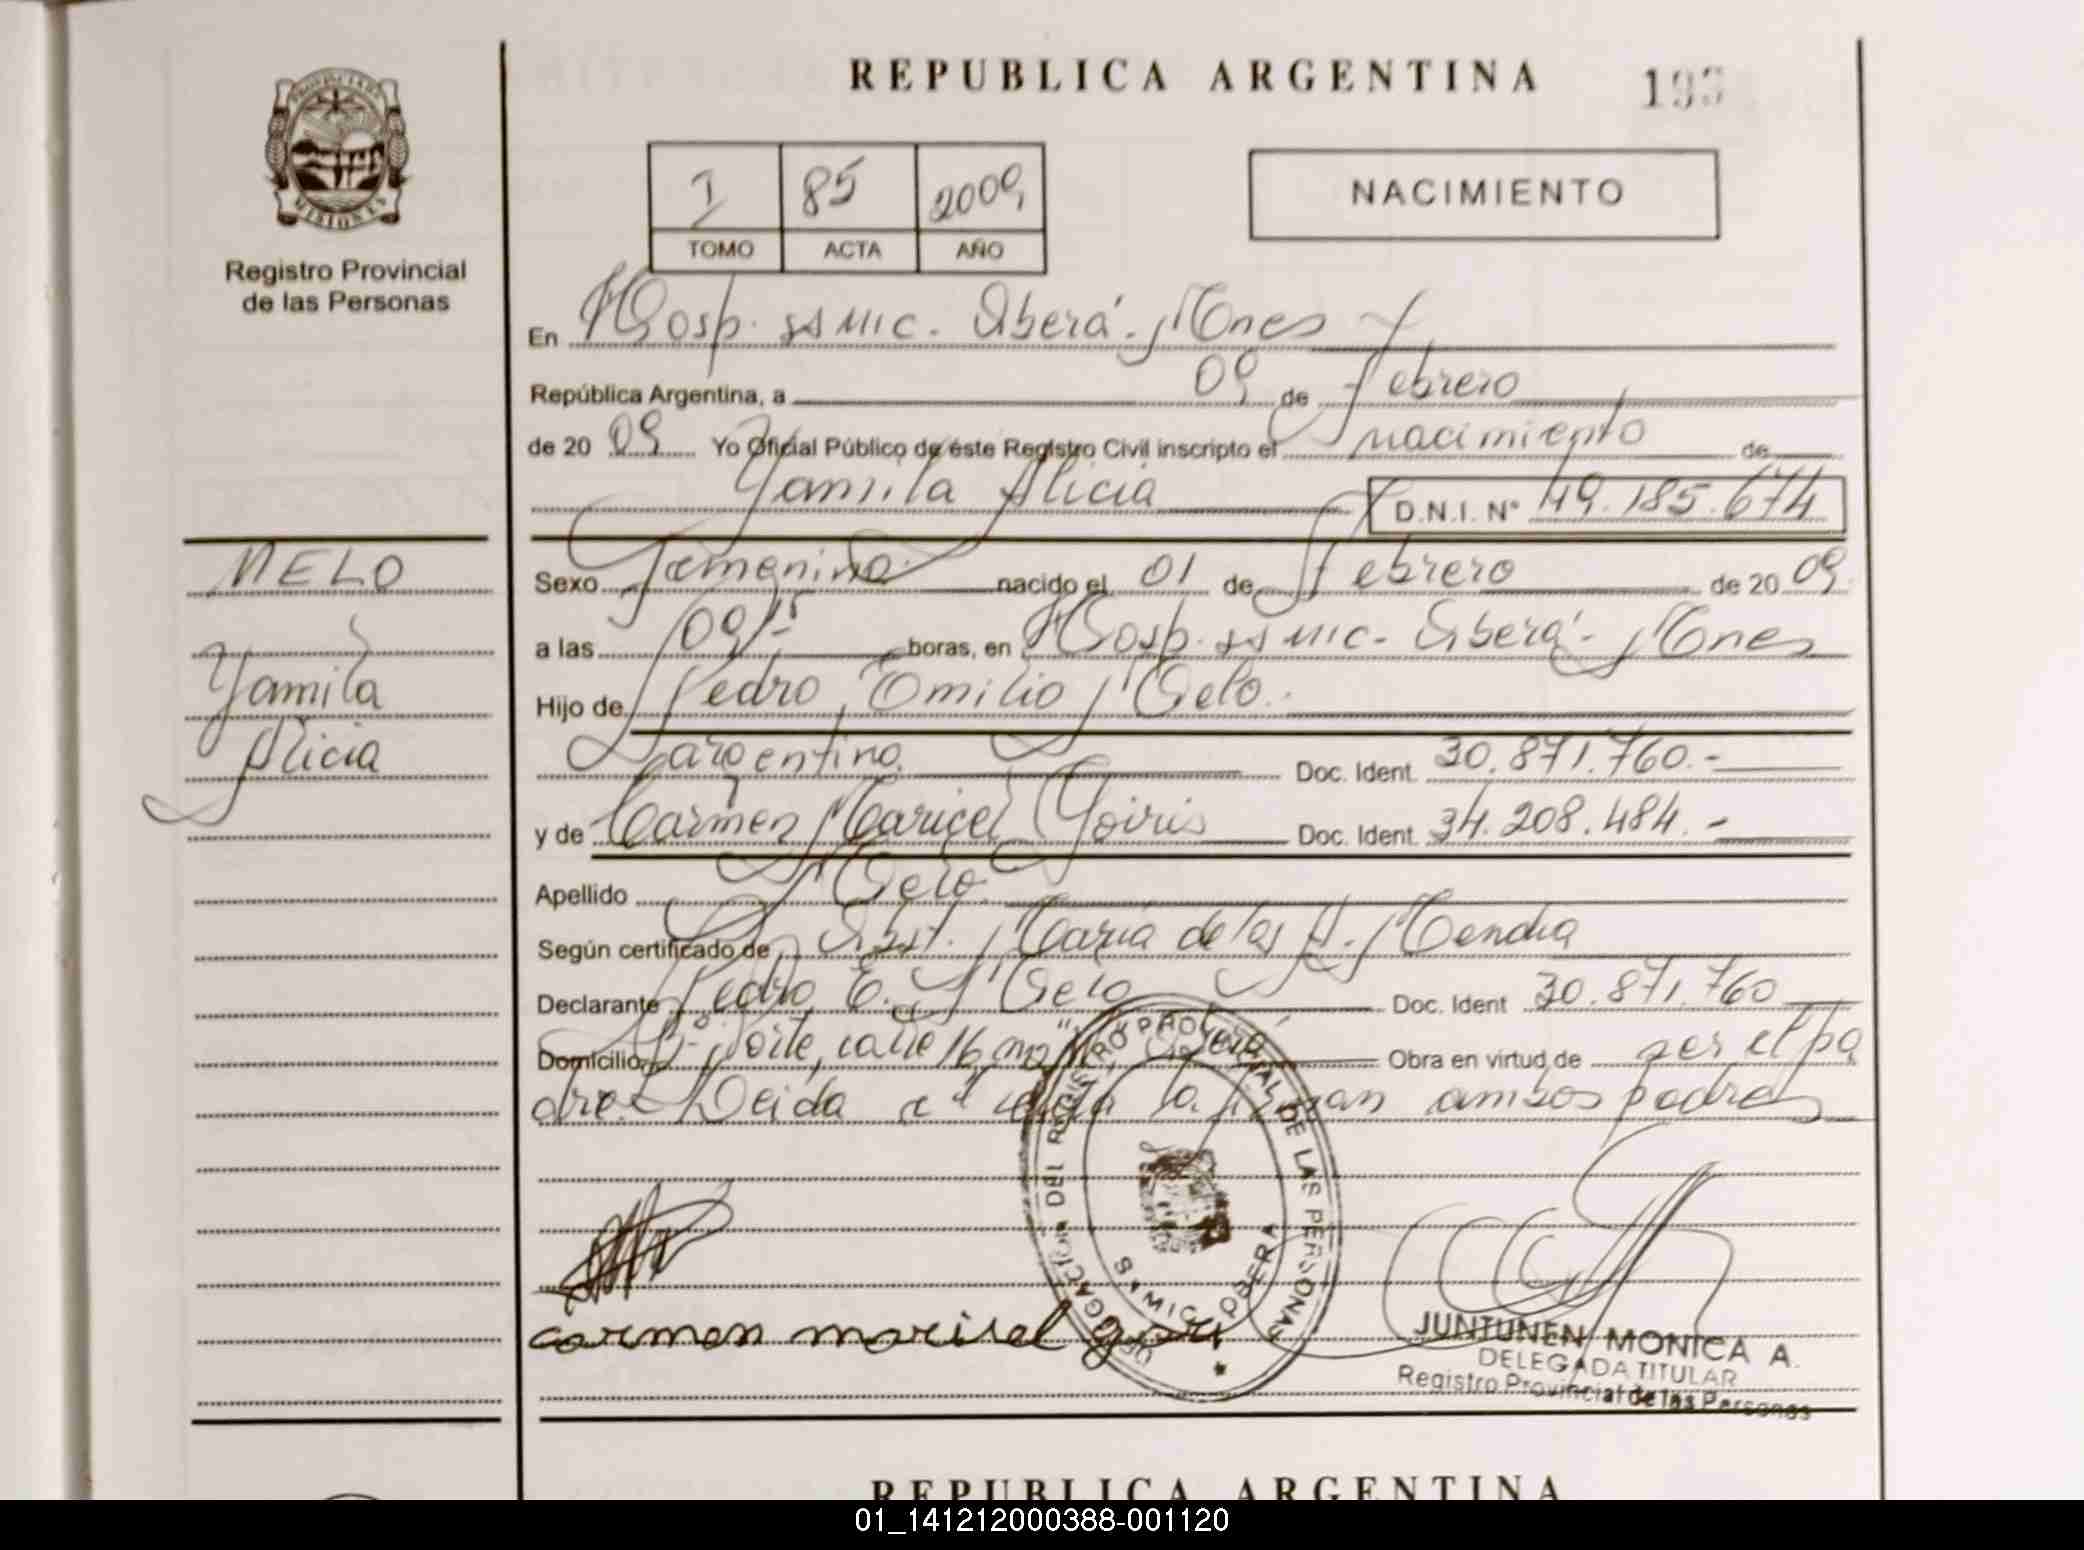 REPUBLICA ARGENTINA
PROVINCIA DE MISIONES
Registro Provincial
de las Personas
1 85 2009
TOMO ACTA AÑO
NACIMIENTO
En Hosp. SAMIC - Oberá - Mnes
República Argentina, a 09 de Febrero
de 20 09 Yo Oficial Público de éste Registro Civil inscripto el nacimiento de
Yamila Alicia D.N.I. N° 49.185.674
MELO
Yamila
Alicia
Sexo Femenino nacido el 01 de Febrero de 20 09
a las boras, en Hosp. SAMIC - Oberá - Mnes
Hijo de Pedro Emilio Melo.
argentino Doc. Ident. 30.871.760.-
y de Carmen Maricel Doc. Ident. 34.208.484.-
Apellido Melo.
Según certificado de Obst. María de los A. Mendia
Declarante Pedro E. Melo Doc. Ident 30.871.760
Domicilio calle 16, Oberá Obra en virtud de ser el pa
dre. Leida el acta la firman ambos padres
DELEGACION DEL REGISTRO PROVINCIAL DE LAS PERSONAS
SAMIC OBERA
carmen marisel
JUNTUNEN MONICA A.
DELEGADA TITULAR
Registro Provincial de las Personas
REPUBLICA ARGENTINA
01_141212000388-001120